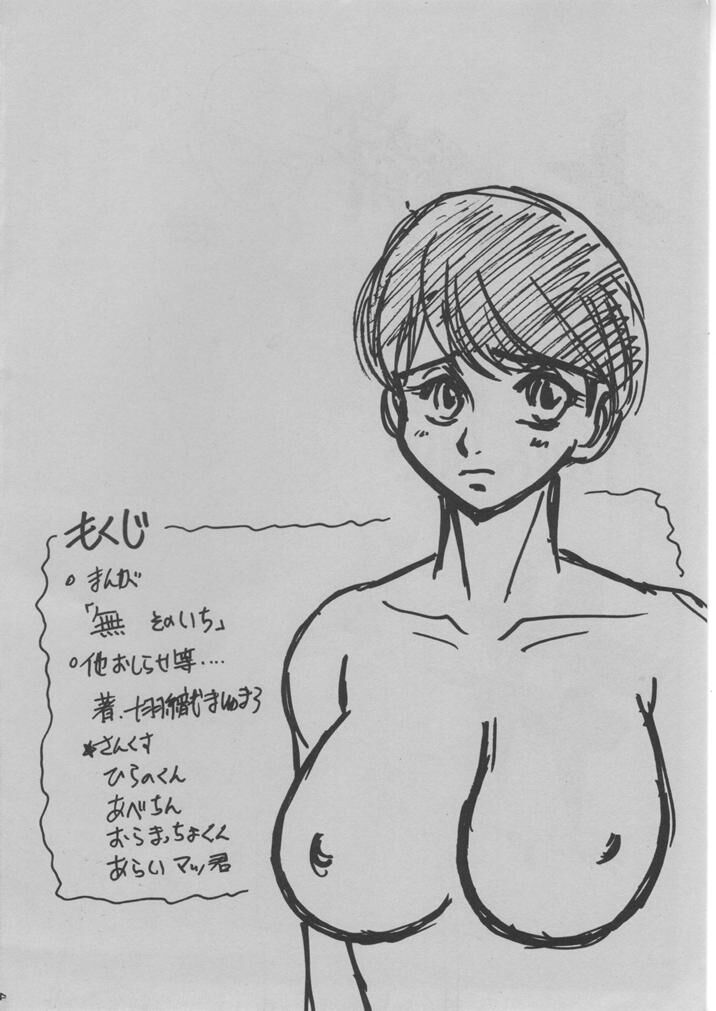 もくじ
○ まんが
「無 そのいち」
○他おしらせ等‥‥
著.羽織ましゅまろ
*さんくす
ひらのくん
あべちん
むらまっちょくん
あらいマッ君